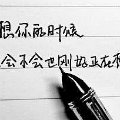 想你的时候
会不会也刚好正在